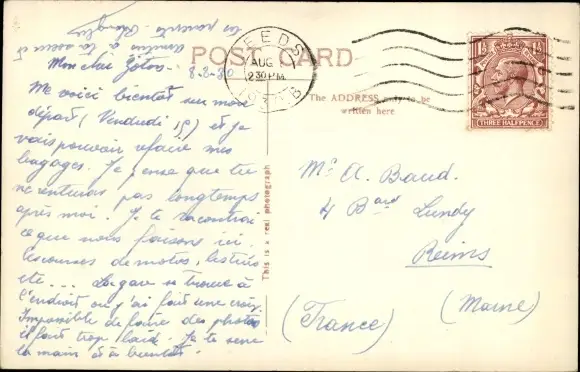 POST CARD
LEEDS
AUG
2 30 PM
1½
1½
THREE HALF PENCE
The ADDRESS only to be
written here
This is a real photograph
8-8-30
Mon cher
Me voici bientôt sur mon
départ (Vendredi 15) et je
vais pouvoir refaire mes
bagages. Je pense que tu
ne rentreras pas longtemps
après moi. Je te raconterai
ce que nous faisons ici.
les courses de motos, les
etc... La gare se trouve à
l'endroit où j'ai fait une croix.
Impossible de faire des photos
il fait trop laid. Je te serre
la main et à bientôt.
amitiés à ta soeur et
tes parents
Mr A. Baud.
4 Bard Lundy
Reims
(France)
(Marne)